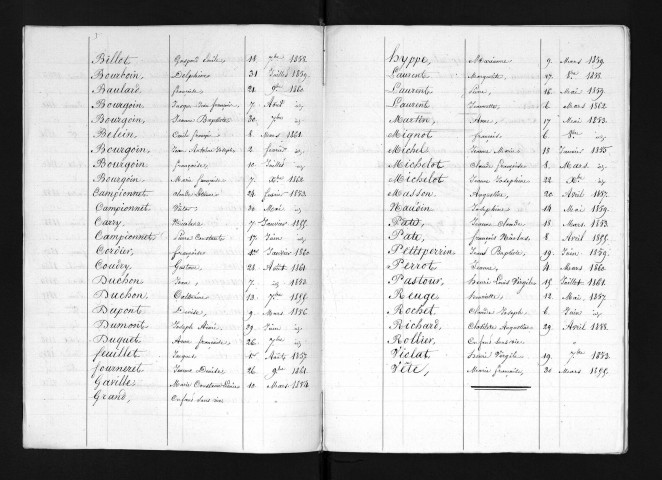 Billot, 18 7bre 1858.
Bourboin, Delphine 31 Juillet 1859.
Baulard, françoise 21 9bre 1860.
Bourgoin, 7 Avril id
Bourgoin, Jeanne Baptiste 30 7bre id
Belein, 8 Mars 1861.
Bourgoin, Jean Antoine Joseph 2 février id
Bourgoin françoise, 10 Juillet id
Bourgoin Marie françoise 7 Xbre 1862.
Campionnet Claude Etienne 24 1853.
Campionnet Victor 20 Mai id
Carry, Nicolas 7 Janvier 1855.
Campionnet Pierre Constant 17 Juin id
Cordier, françoise 1er Janvier 1860
Coudry, Gaston 28 Août 1861.
Duchon Jean, 7 id 1852
Duchon, Catherine 13 7bre 1855.
Dupont Louise 9 Mars 1856
Dumont Joseph Aimé 29 Juin id
Duquet Anne françoise 26 7bre id
feuillet Jacques 1er Août 1857
fourneret Jeanne 26 9bre 1861.
Gaville Marie 10 Mars 1854
Grand, Enfant sans vie "
hyppe, Marianne 9 Mars 1859.
Laurent Marguerite 27 8bre 1858.
Laurent Pierre, 16 Mai 1859.
Laurent Jeannette 6 Mars 1862.
Martin, Anne, 17 Mai 1853.
Mignot françois 6 8bre id
Michel Jeanne Marie 18 Janvier 1855
Michelot Claude françoise 8 Mars id
Michelot Jeanne Joséphine 22 Xbre id
Masson Augustine 20 Avril 1857.
Naudin Joséphine 14 Mai 1859.
Pate, Jeanne Claude 18 Mars 1853.
Pate, françois Nicolas 8 Avril 1855.
Petitperrin Jean Baptiste, 19 Juin 1859.
Perrot Jeanne 4 Mars 1860
Pastour, Henri Louis Virgile 15 Juillet 1861.
Reuge Henriette 12 Mai 1857
Rochet Claude Joseph 6 Juin id
Richard, Clotilde Augustine 29 Avril 1858.
Rollier, Enfant sans vie "
Viclat Henri Virgile 19 7bre 1852
Vête, Marie françoise, 30 Mars 1855.